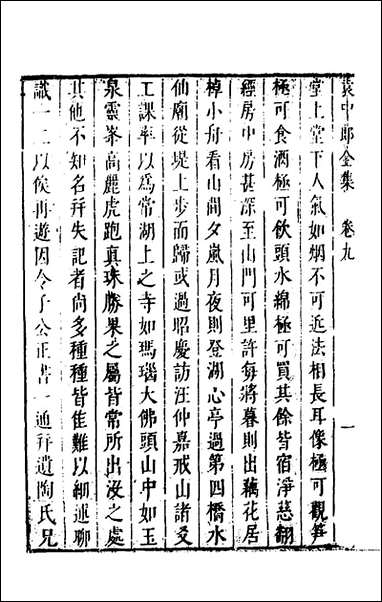 袁中郎全集 卷九 一
堂上堂下人氣如烟不可近法相長耳像極可觀笋
極可食酒極可飲頭水綿極可買其餘皆宿淨慈翻
經房中房甚深至山門可里許每將暮則出藕花居
棹小舟看山間夕嵐月夜則登湖心亭過第四橋水
仙廟從堤上步而歸或過昭慶訪汪仲嘉戒山諸爻
工課率以爲常湖上之寺如瑪瑙大佛頭山中如玉
泉靈峯高麗虎跑真珠勝果之屬皆常所出沒之處
其他不知名并失記者尚多種種皆佳難以細述聊
識一二以候再遊因令子公正書一通并遺陶氏兄